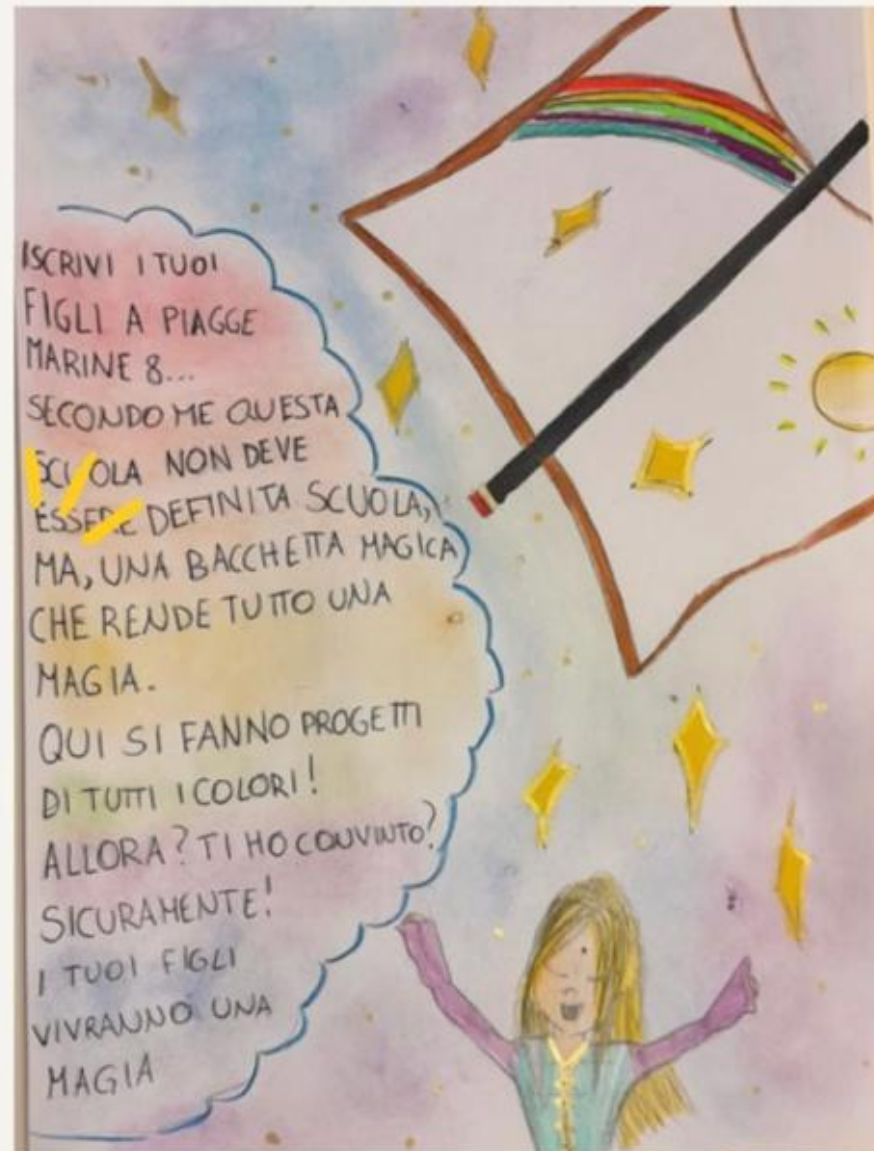 ISCRIVI I TUOI
FIGLI A PIAGGE
MARINE 8...
SECONDO ME QUESTA
SCUOLA NON DEVE
ESSERE DEFINITA SCUOLA,
MA, UNA BACCHETTA MAGICA
CHE RENDE TUTTO UNA
MAGIA.
QUI SI FANNO PROGETTI
DI TUTTI I COLORI!
ALLORA? TI HO CONVINTO?
SICURAMENTE!
I TUOI FIGLI
VIVRANNO UNA
MAGIA